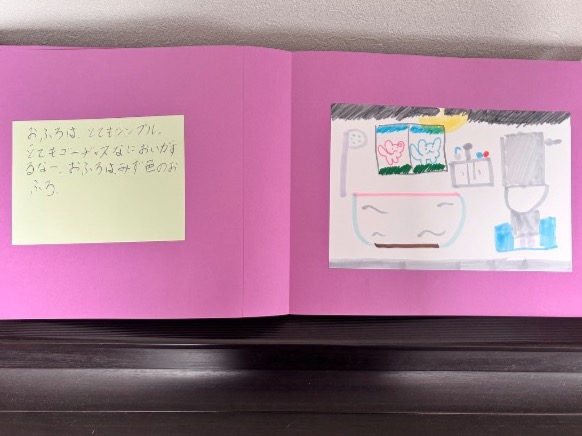 おふろは、とてもシンプル。
とてもゴージャスなにおいがす
るなー。おふろはみず色のお
ふろ。